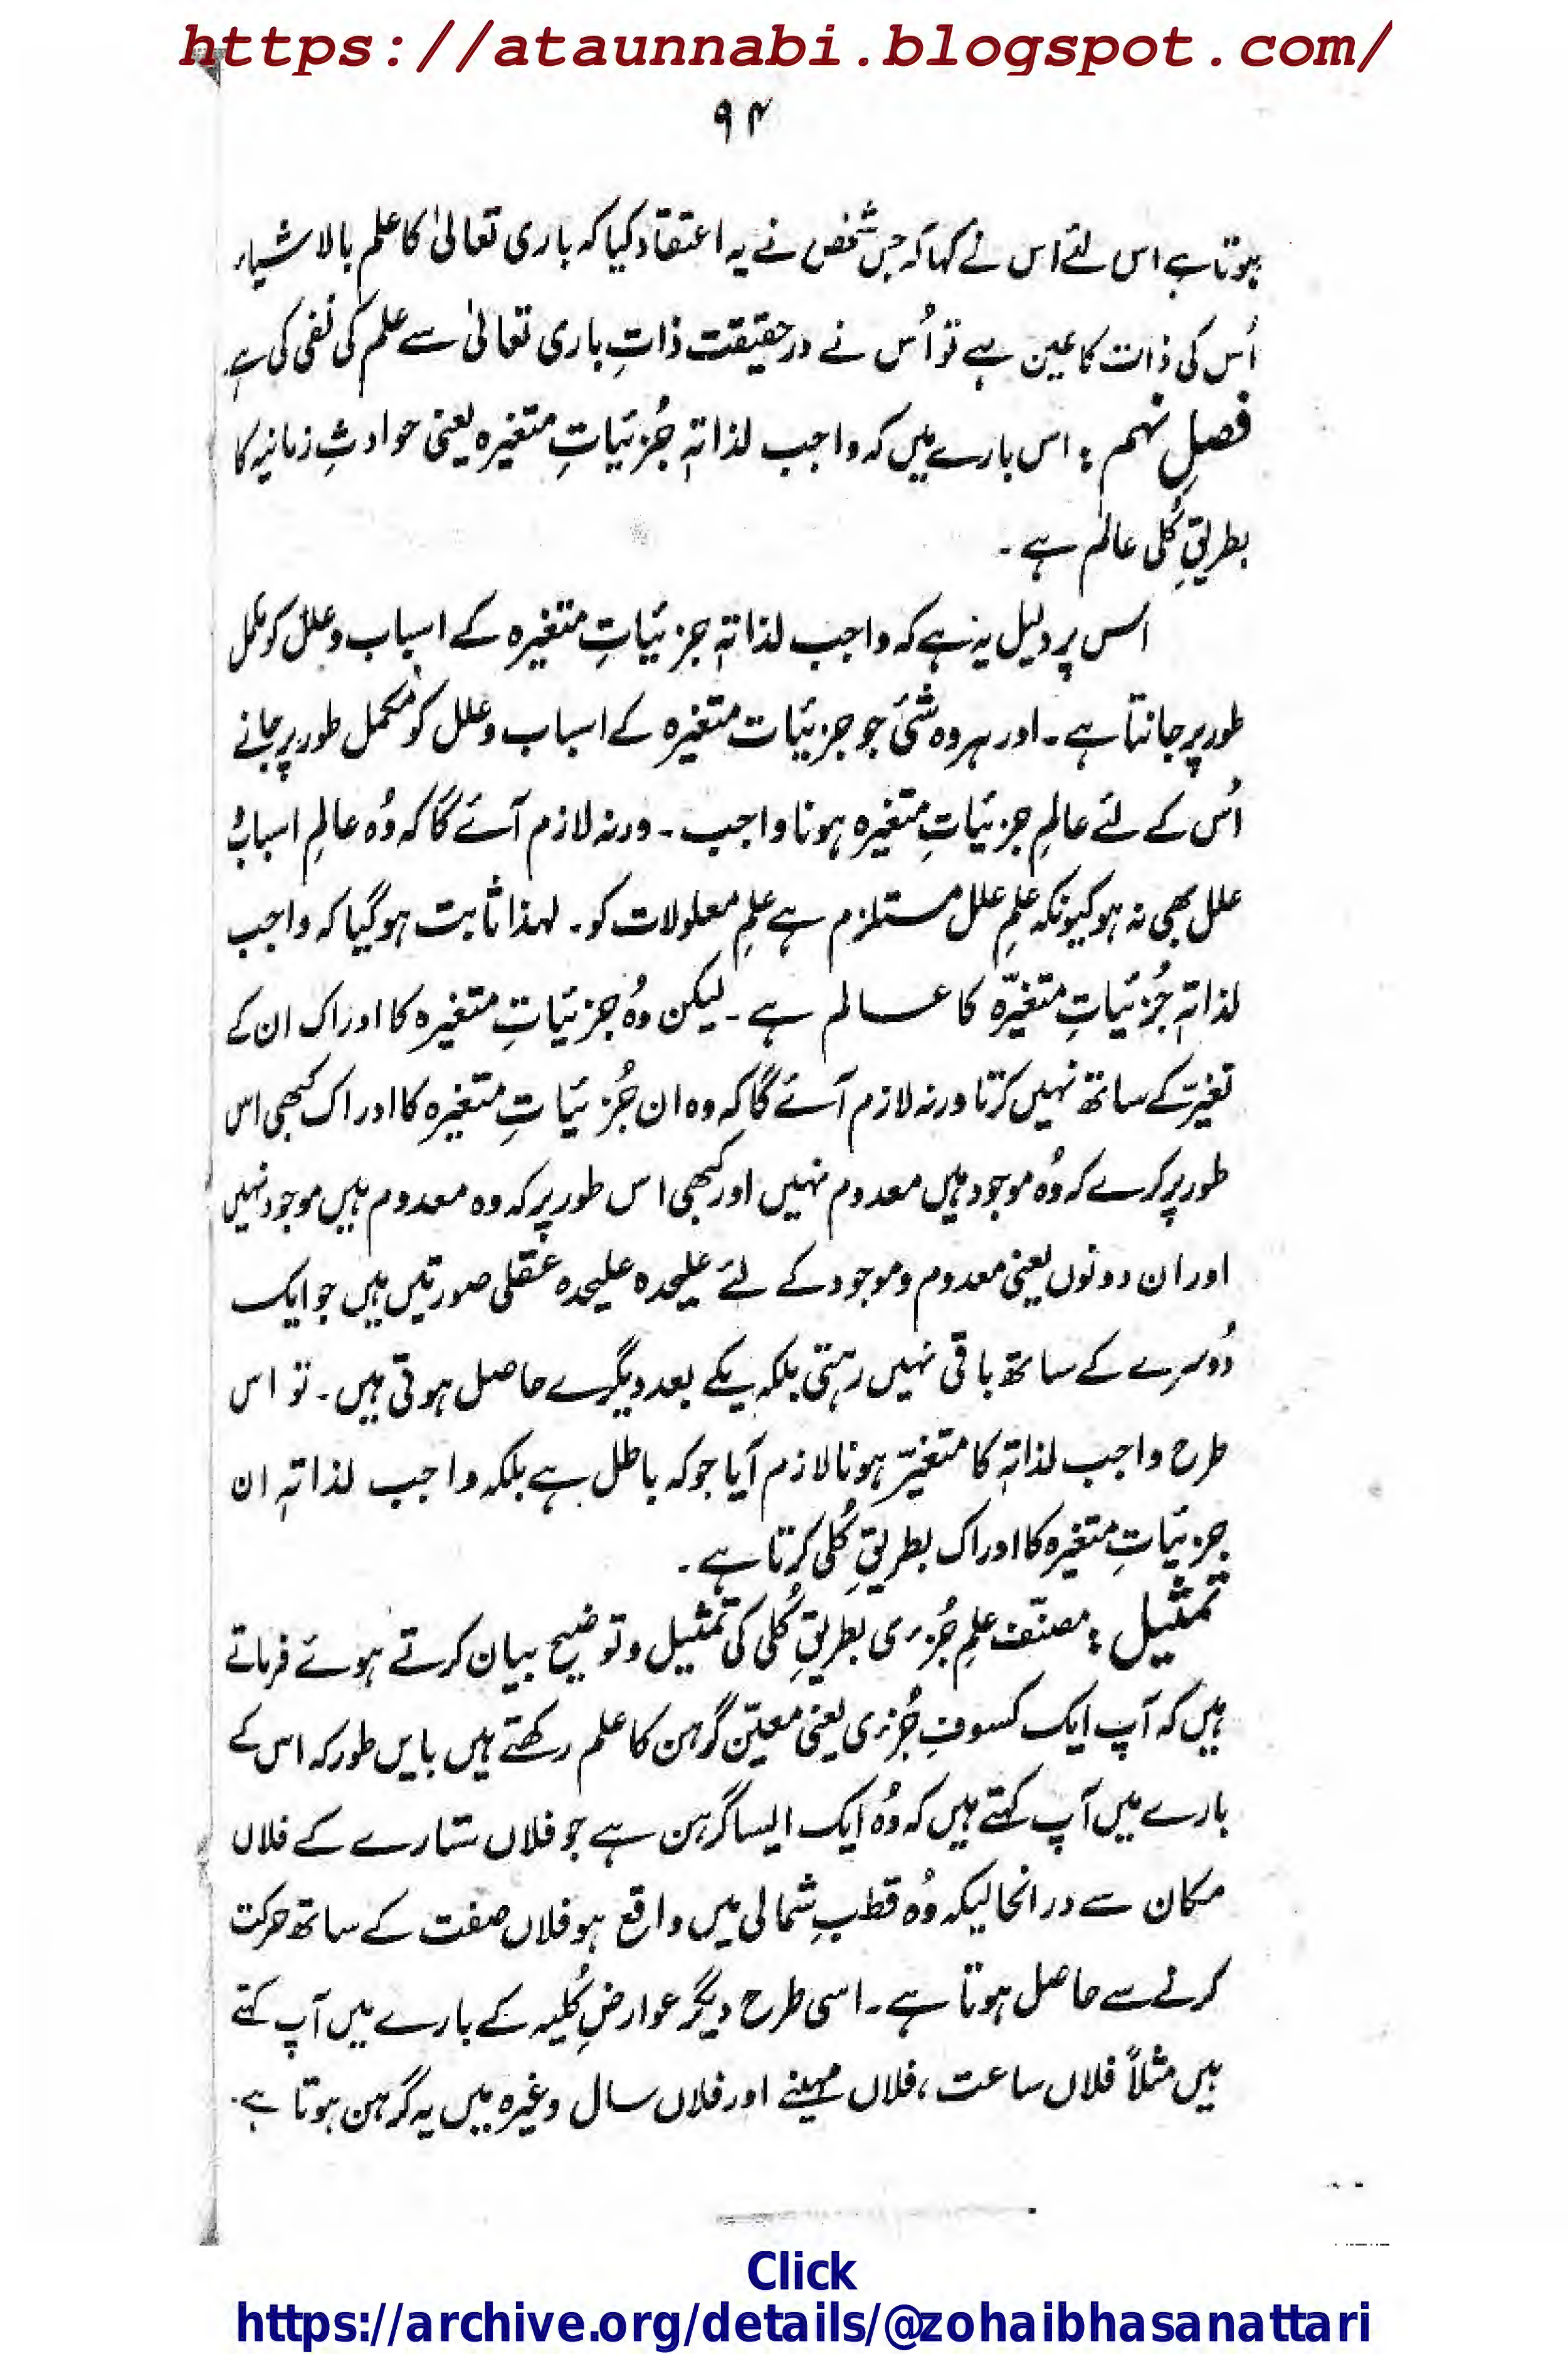 https://ataunnabi.blogspot.com/
۹۴
ہوتا ہے اس لئے اس نے کہا کہ جس شخص نے یہ اعتقاد کیا کہ باری تعالیٰ کا علم بالاشیاء
اُس کی ذات کا عین ہے تو اُس نے درحقیقت ذاتِ باری تعالیٰ سے علم کی نفی کی ہے۔
فصلِ نہم : اس بارے میں کہ واجب لذاتہٖ جُزئیاتِ متغیرہ یعنی حوادثِ زمانیہ کا
بطریقِ کُلی عالم ہے ۔
اس پر دلیل یہ ہے کہ واجب لذاتہٖ جزئیاتِ متغیرہ کے اسباب و علل کو مکمل
طور پر جانتا ہے ۔ اور ہر وہ شئ جو جزئیات متغیرہ کے اسباب و علل کو مکمل طور پر جانے
اُس کے لئے عالمِ جزئیاتِ متغیرہ ہونا واجب ۔ ورنہ لازم آئے گا کہ وُہ عالمِ اسباب و
علل بھی نہ ہو کیونکہ علمِ علل مستلزم ہے علمِ معلولات کو ۔ لہذا ثابت ہو گیا کہ واجب
لذاتہٖ جُزئیاتِ متغیرّہ کا عالم ہے ۔ لیکن وُہ جزئیاتِ متغیرہ کا ادراک ان کے
تغیر کے ساتھ نہیں کرتا ورنہ لازم آئے گا کہ وہ ان جُزئیاتِ متغیرہ کا ادراک کبھی اس
طور پر کرے کہ وُہ موجود ہیں معدوم نہیں اور کبھی اس طور پر کہ وہ معدوم ہیں موجود نہیں
اور ان دونوں یعنی معدوم و موجود کے لئے علیحدہ علیحدہ عقلی صورتیں ہیں جو ایک
دُوسرے کے ساتھ باقی نہیں رہتی بلکہ یکے بعد دیگرے حاصل ہوتی ہیں ۔ تو اس
طرح واجب لذاتہٖ کا متغیرّ ہونا لازم آیا جو کہ باطل ہے بلکہ واجب لذاتہٖ ان
جزئیاتِ متغیرہ کا ادراک بطریقِ کُلی کرتا ہے ۔
تمثیل : مصنّف علمِ جُزئی بطریقِ کُلی کی تمثیل و توضیح بیان کرتے ہوئے فرماتے
ہیں کہ آپ ایک کسوفِ جُزئی یعنی معیّن گرہن کا علم رکھتے ہیں بایں طور کہ اس کے
بارے میں آپ کہتے ہیں کہ وُہ ایک ایسا گرہن ہے جو فلاں ستارے کے فلاں
مکان سے درانحالیکہ وُہ قطبِ شمالی میں واقع ہو فلاں صفت کے ساتھ حرکت
کرنے سے حاصل ہوتا ہے ۔ اسی طرح دیگر عوارضِ کُلیہ کے بارے میں آپ کہتے
ہیں مثلاً فلاں ساعت ، فلاں مہینے اور فلاں سال وغیرہ میں یہ گرہن ہوتا ہے ۔
Click
https://archive.org/details/@zohaibhasanattari